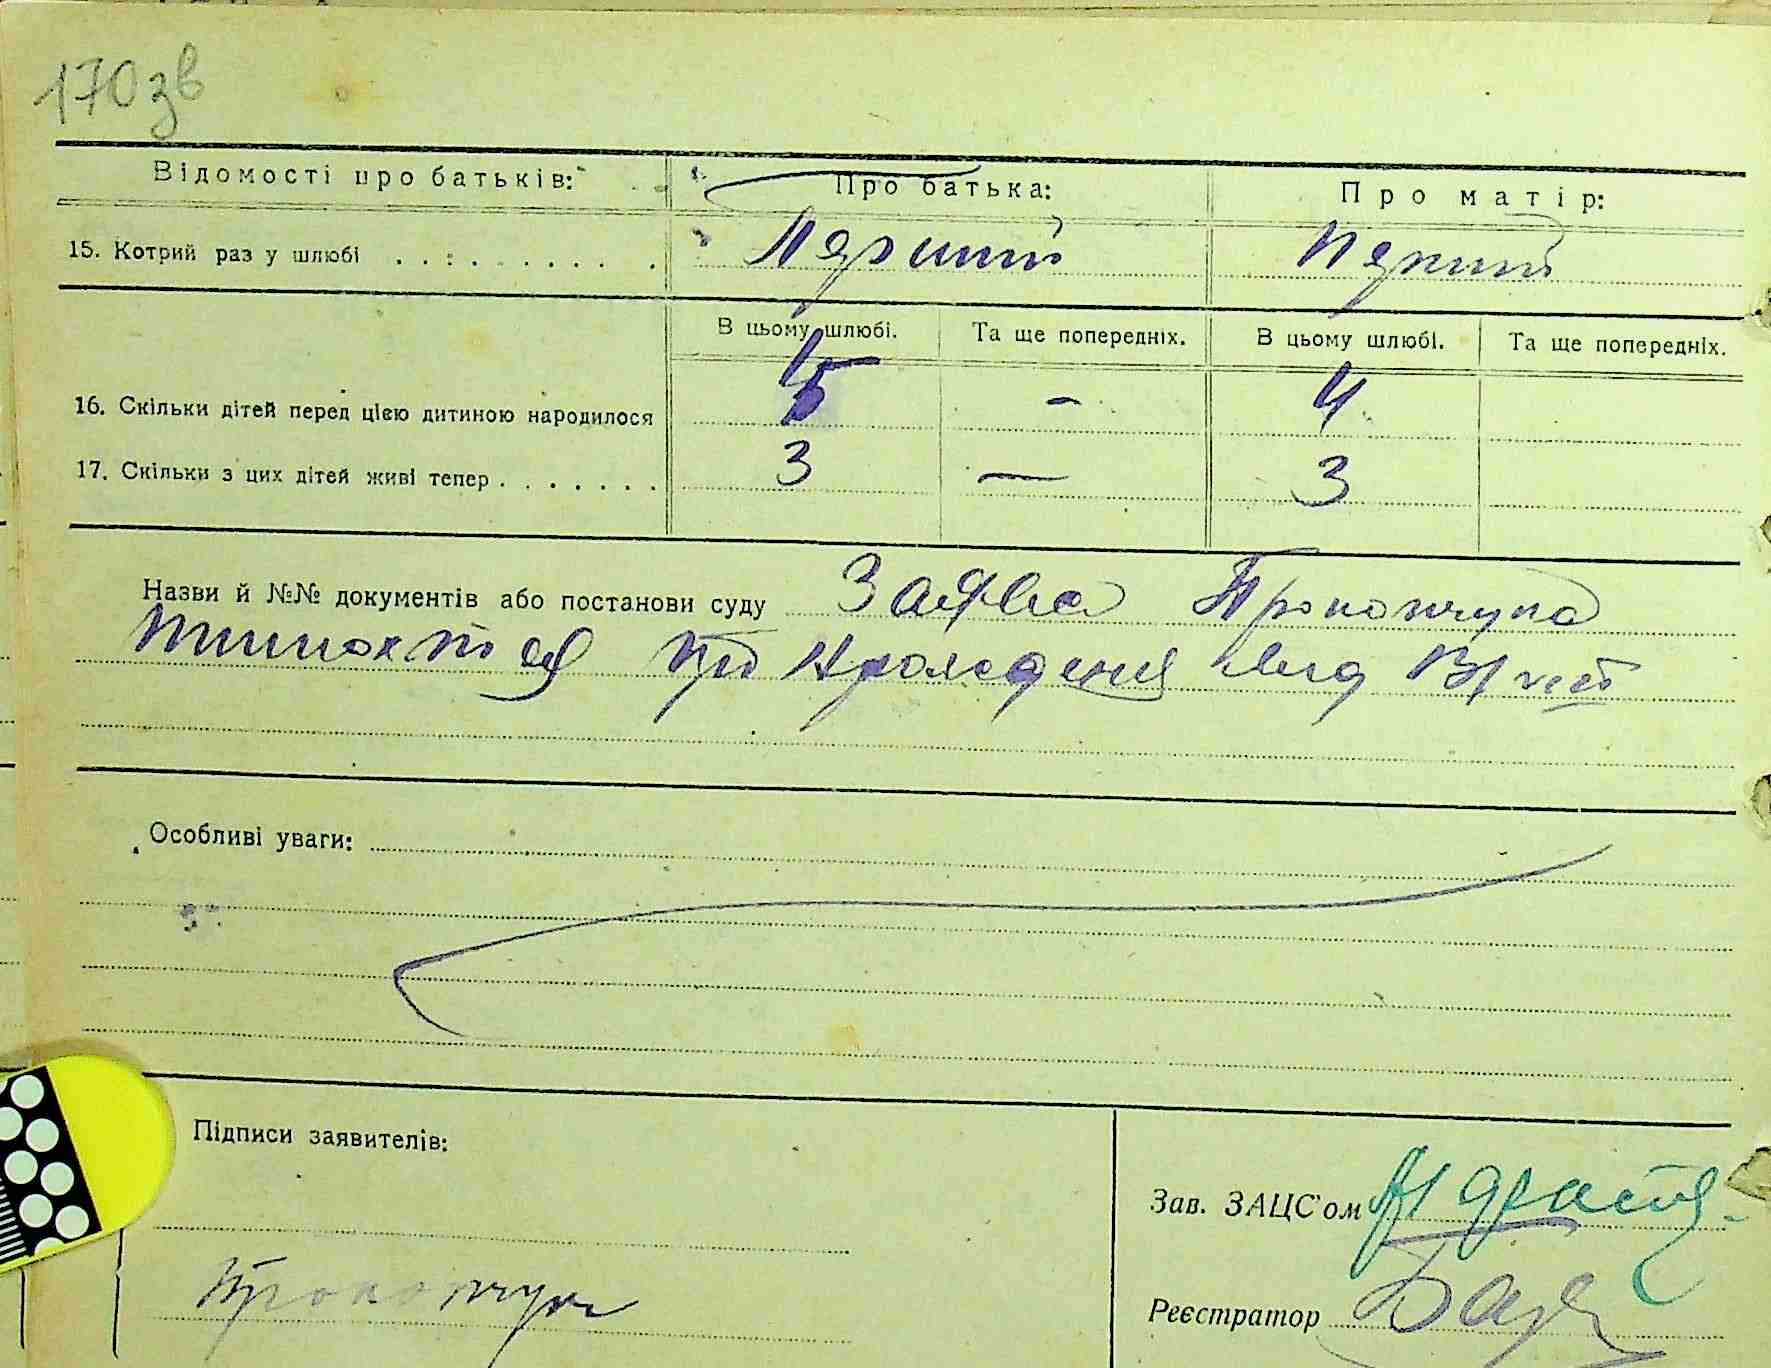 170 зв
Відомості про батьків: Про батька: Про матір:
15. Котрий раз у шлюбі . . . . . . . . . . Перший Перший
В цьому шлюбі. Та ще попередніх. В цьому шлюбі. Та ще попередніх.
16. Скільки дітей перед цією дитиною народилося 5 - 4
17. Скільки з цих дітей живі тепер . . . . . . . 3 — 3
Назви й №№ документів або постанови суду Заява Прокопчука
про
Особливі уваги:
Підписи заявителів:
Зав. ЗАЦС'ом
Прокопчук
Реєстратор